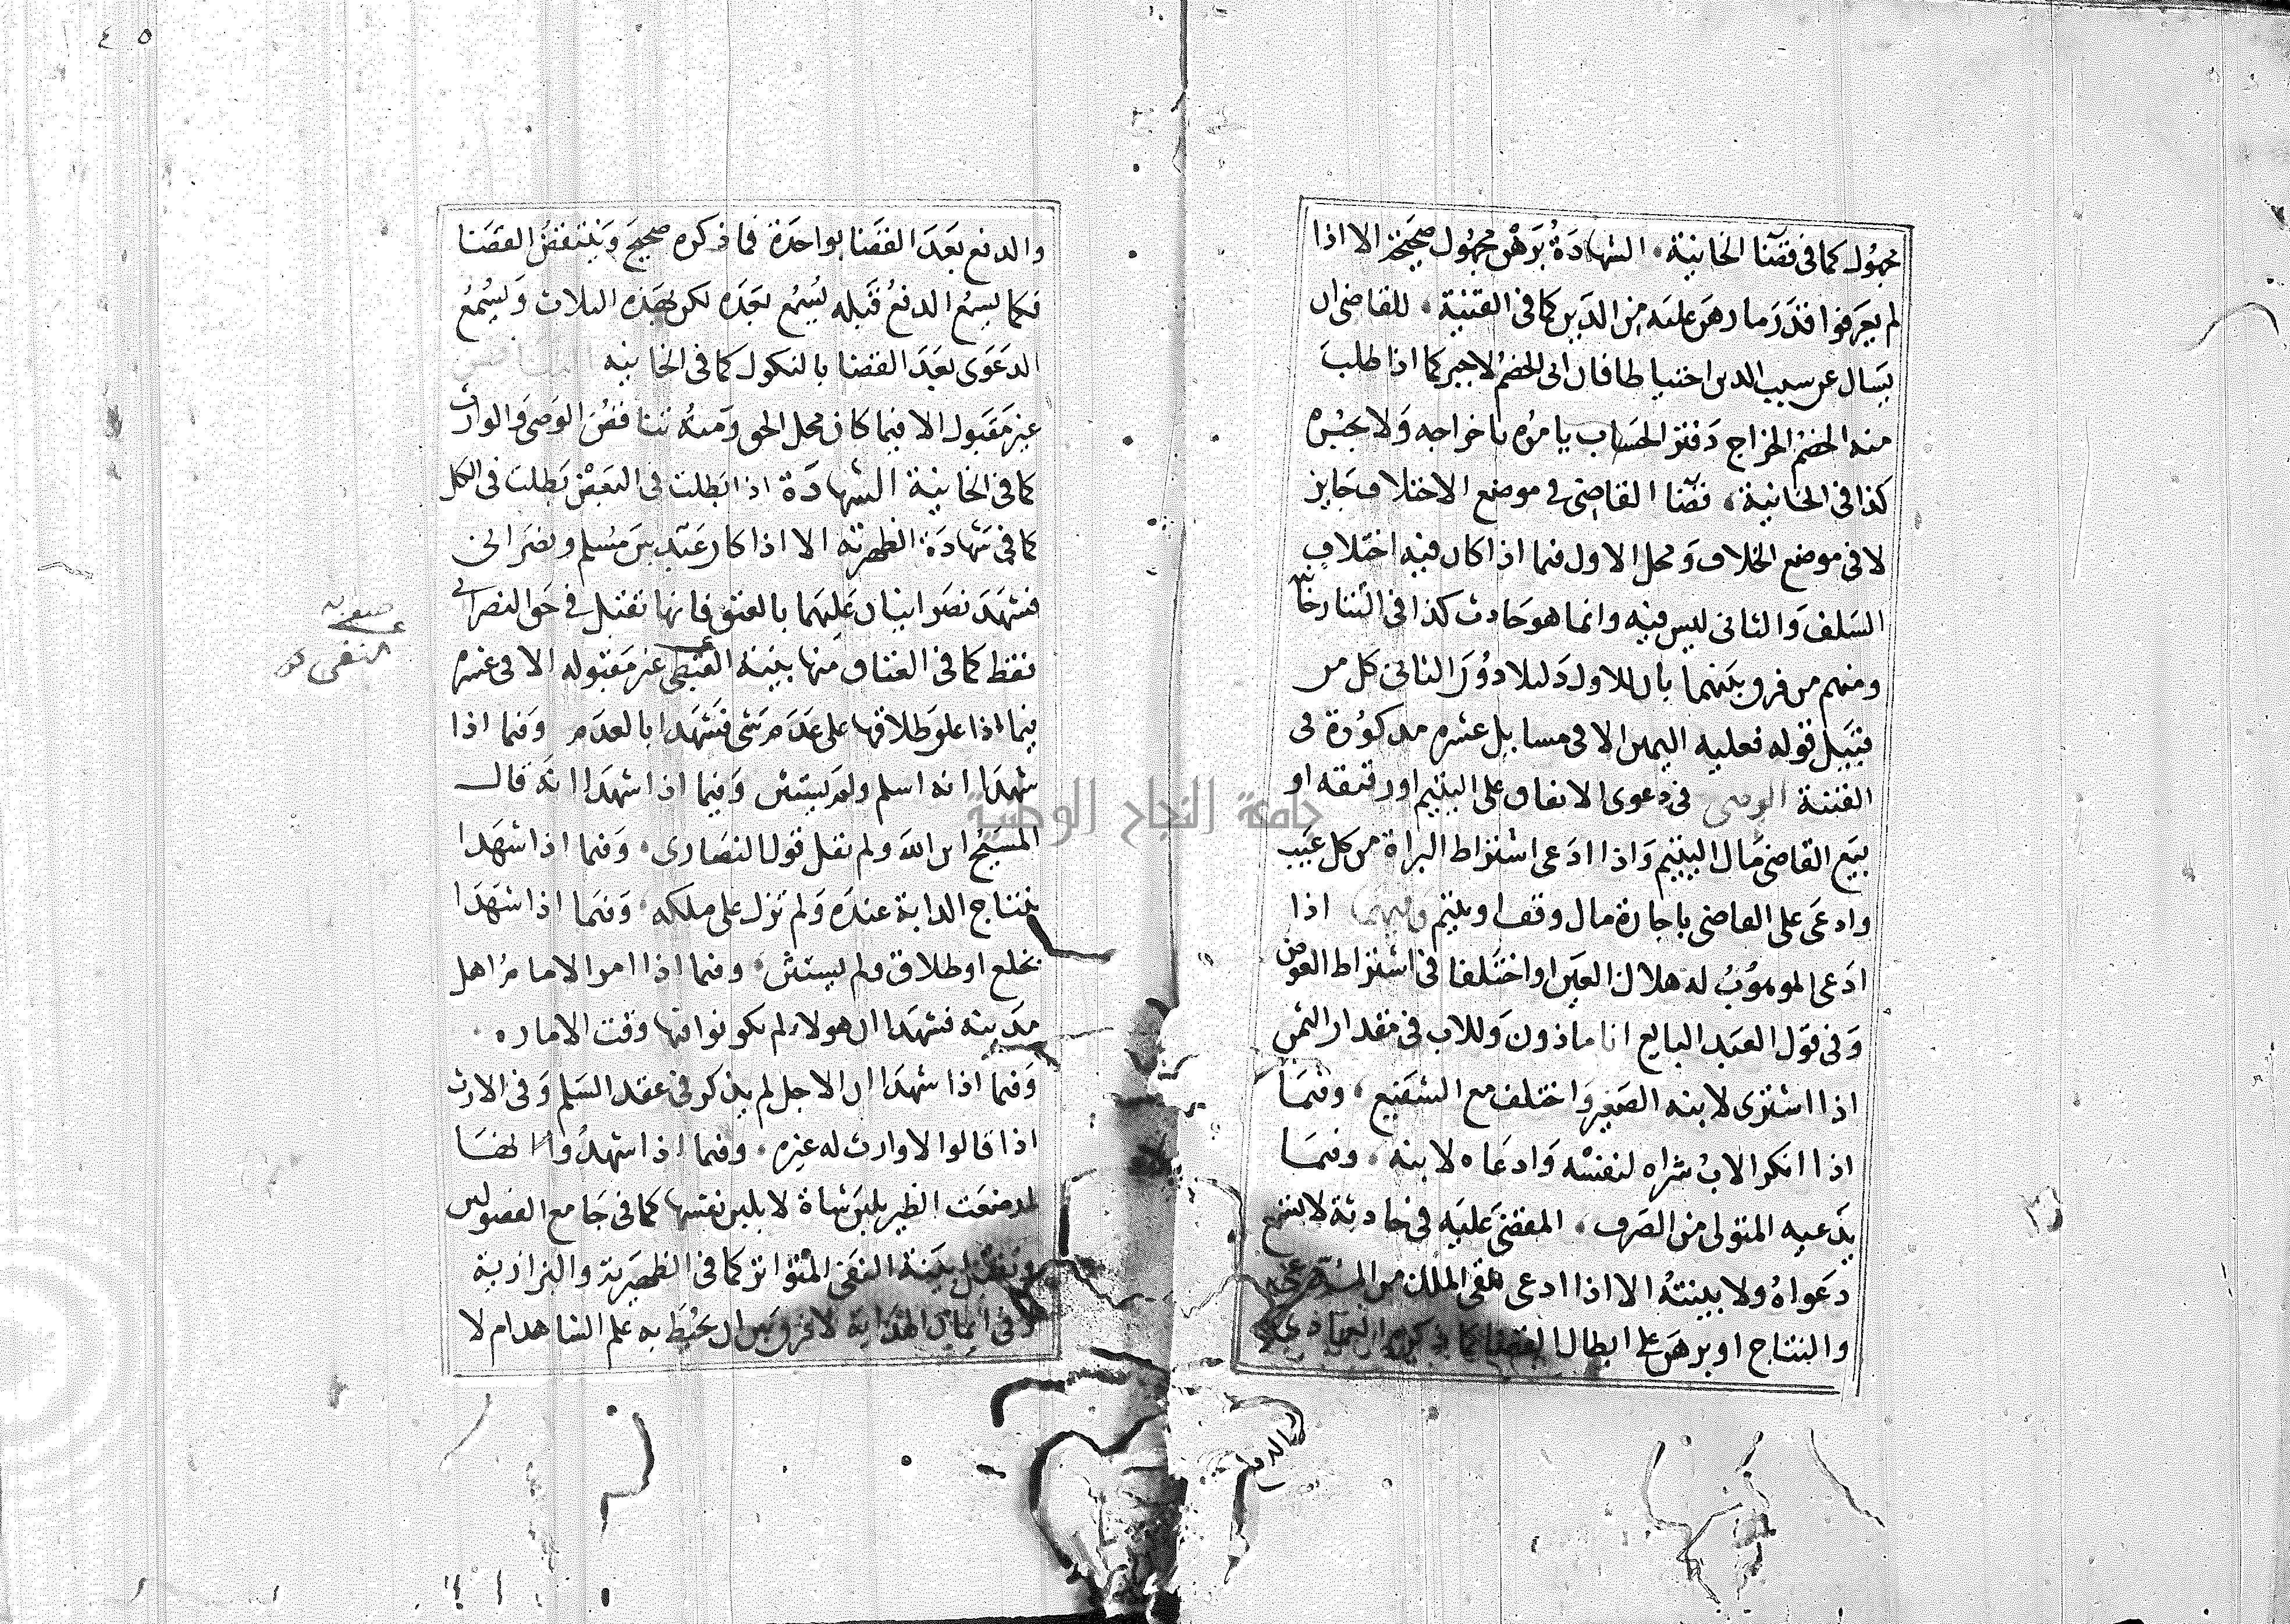 مجهول كما فى قضا الخانية الشهادة برهن مجهول صحيحة الا اذا
لم يعرفوا قدر ما رهن عليه من الدين كما فى القنية للقاضى ان
يسال عن سبب الدين احتياطا فان ابى الخصم لا يجبر كما اذا طلب
منه الخصم اخراج دفتر الحساب يامره باخراجه ولا يجبره
كذا فى الخانية قضا القاضى فى موضع الاختلاف جايز
لا فى موضع الخلاف ومحل الاول فيما اذا كان فيه اختلاف
السلف والثانى ليس فيه وانما هو حادث كذا فى التتارخا
ومنهم من فرق بينهما بان للاول دليلا دون الثانى كل من
قبل قوله فعليه اليمين الا فى مسايل عشره مذكورة فى
القنية الوصى فى دعوى الانفاق على اليتيم او رقيقه او
بيع القاضى مال اليتيم واذا ادعى اشتراط البراة من كل عيب
وادعى على القاضى باجارة مال وقف او يتيم وفيما اذا
ادعى الموهوب له هلاك العين او اختلفا فى اشتراط العوض
وفى قول العبد البايع انا ماذون وللاب فى مقدار الثمن
اذا اشترى لابنه الصغير واختلف مع الشفيع وفيما
اذا انكر الاب شراه لنفسه وادعاه لابنه وفيما
يدعيه المتولى من الصرف المقضى عليه فى حادثة لا تسمع
دعواه ولا بينته الا اذا ادعى تلقى الملك من المدعى
والنتاج او برهن على ابطال القضا كما ذكره العمادى
والدفع
والدفع بعد القضا بواحدة فما ذكره صحيح وينتقض القضا
فكما يسمع الدفع قبله يسمع بعده لكن بهذه الثلاث ويسمع
الدعوى بعد القضا بالنكول كما فى الخانيه التناقض
غير مقبول الا فيما كان محل الحق ومنه تناقض الوصى والوارث
كما فى الخانية الشهادة اذا بطلت فى البعض بطلت فى الكل
كما فى شهادة الظهرية الا اذا كان عبد بين مسلم ونصرانى
فشهد نصرانيان عليهما بالعتق فانها تقبل فى حق النصرانى
فقط كما فى العتاق منها بينة النفى غير مقبوله الا فى عشره
فيما اذا علق طلاقها على عدم شى فشهدا بالعدم وفيما اذا
شهدا انه اسلم ولم يستثن وفيما اذا شهدا انه قال
المسيح ابن الله ولم يقل قول النصارى وفيما اذا شهدا
بنتاج الدابة عنده ولم تزل على ملكه وفيما اذا شهدا
بخلع او طلاق ولم يستثن وفيما اذا امن الامام اهل
مدينه فشهدا ان هولاء لم يكونوا فيها وقت الامان
وفيما اذا شهدا ان الاجل لم يذكر فى عقد السلم وفى الارث
اذا قالوا لا وارث له غيره وفيما اذا شهدوا انها
ارضعت الظير بلبن شاة لا بلبن نفسها كما فى جامع الفصولين
وتقبل بينة النفى المتواتر كما فى الظهيرية والبزازية
وفى ايمان الهداية لا فرق بين ان يحيط به علم الشاهد ام لا
على
النفى
٤٥
جامعة النجاح الوطنية